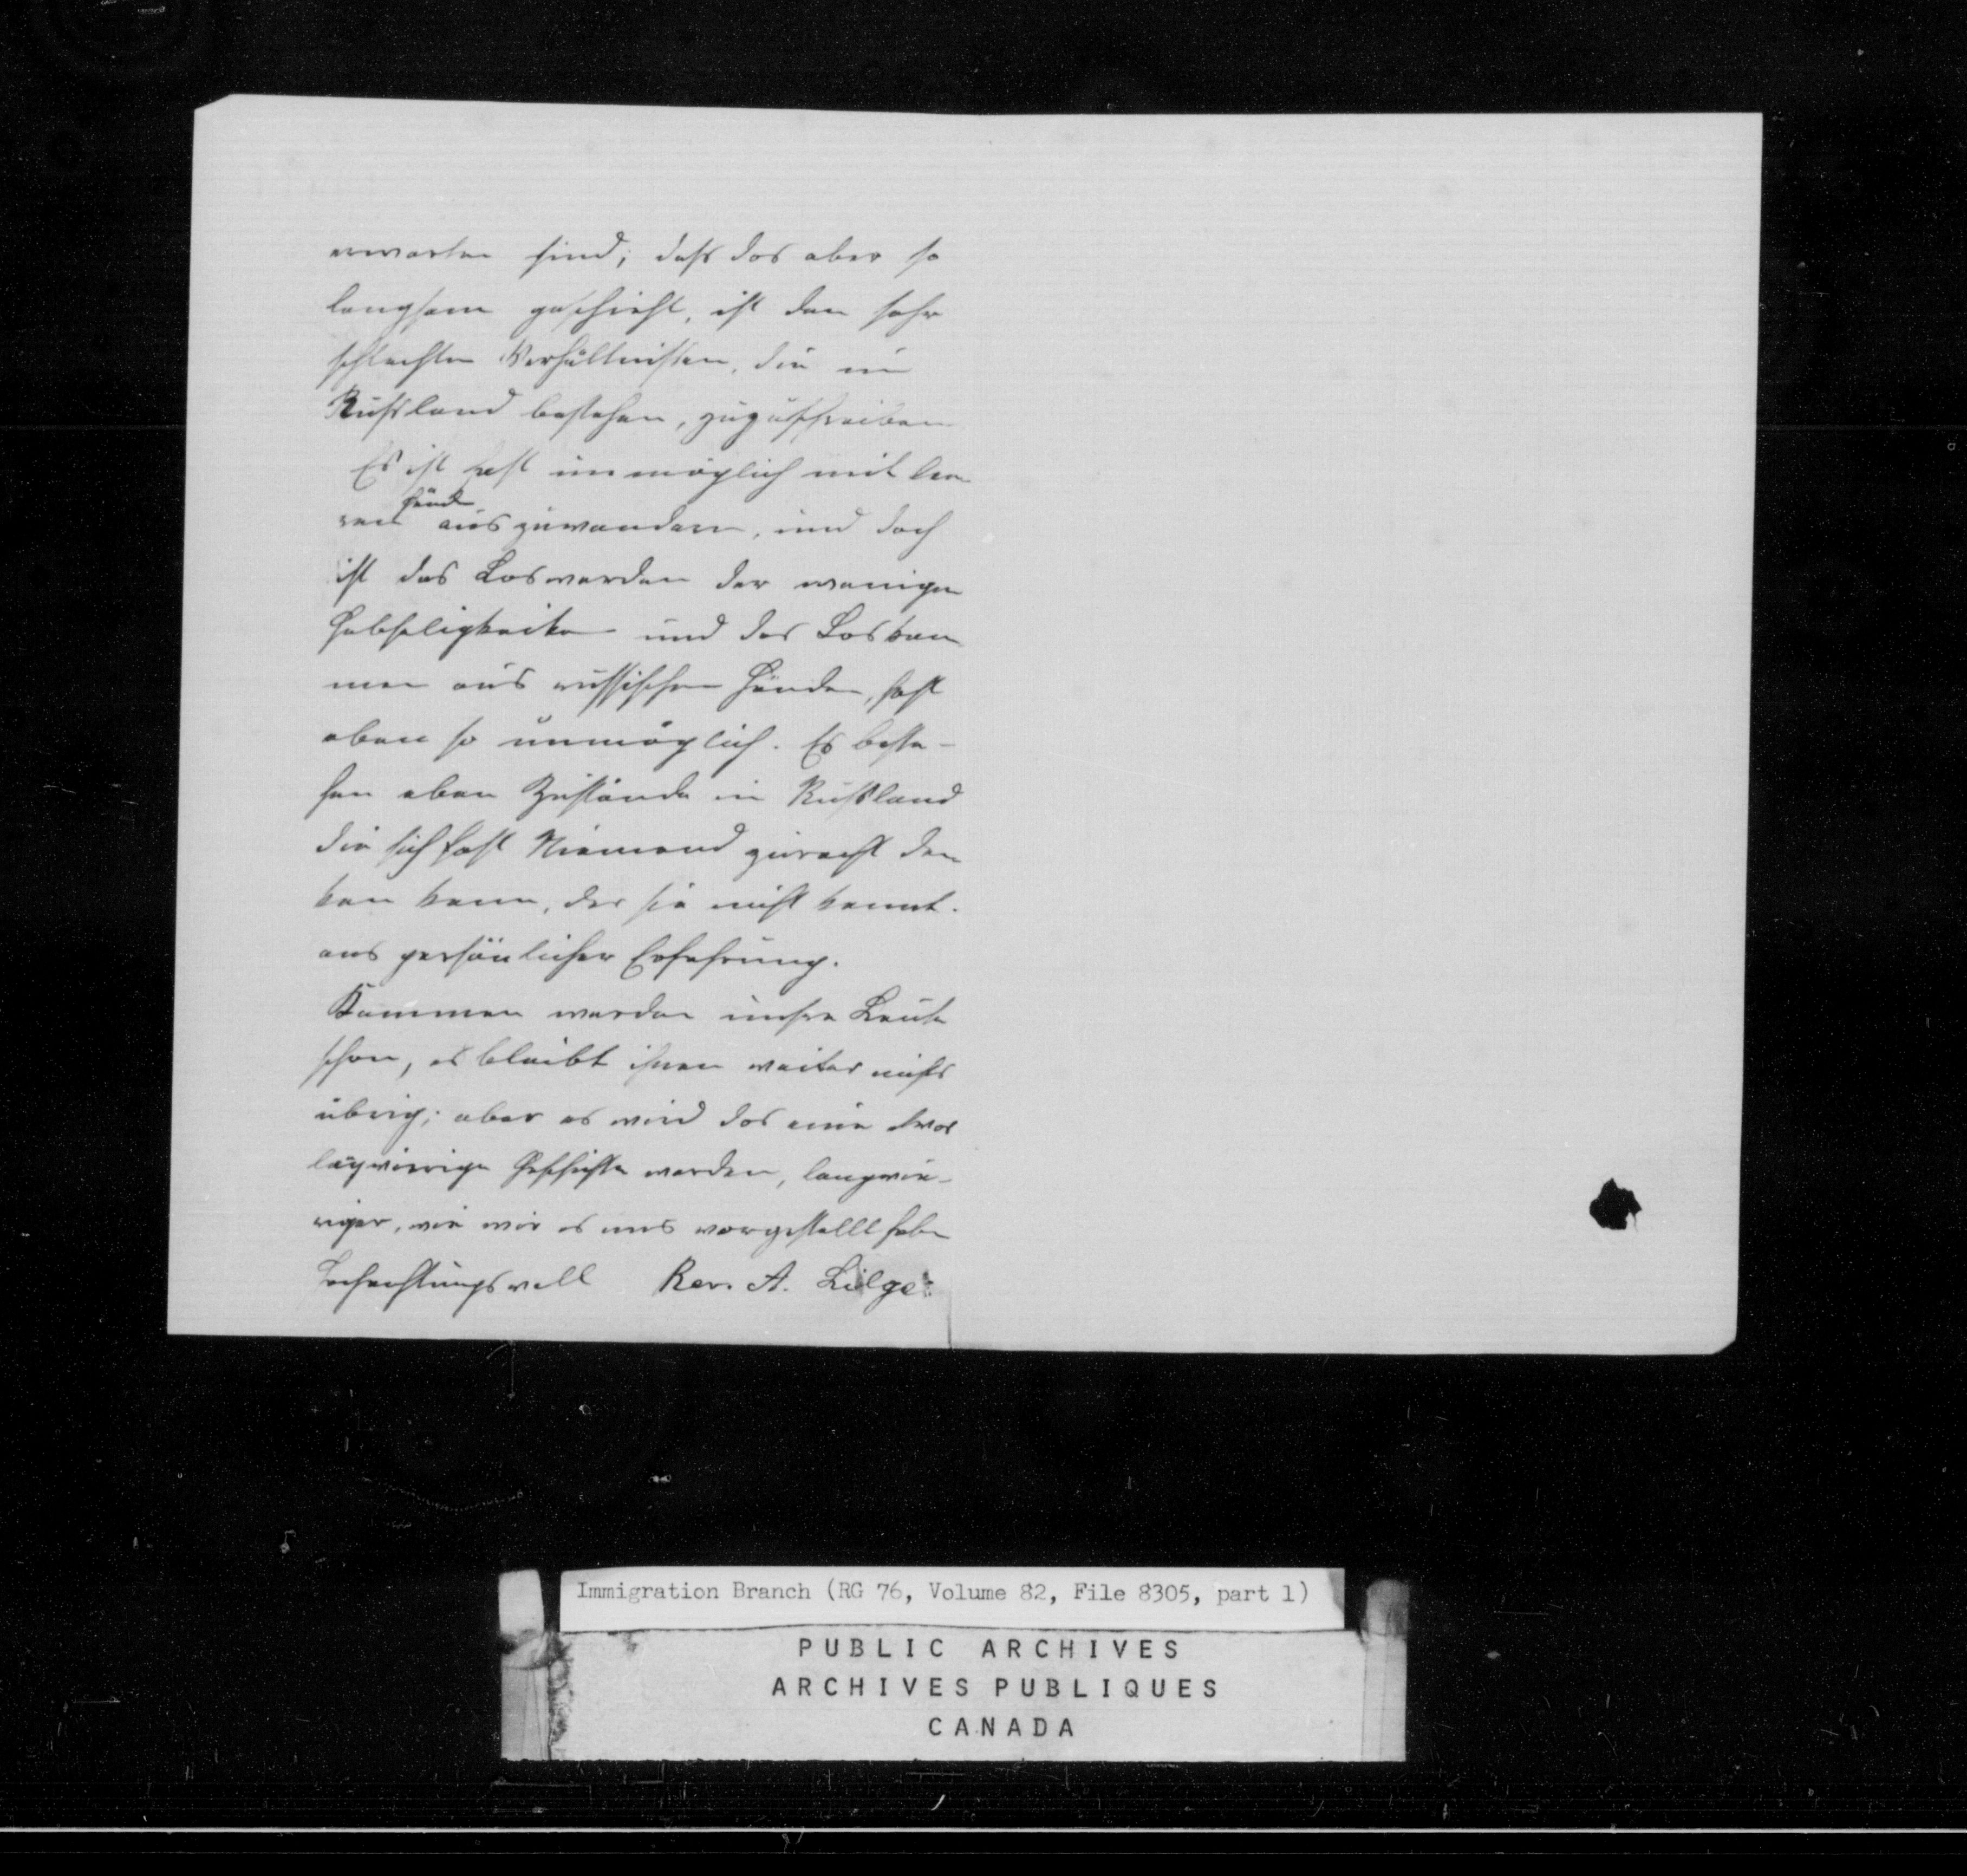 erwarten sind; daß das aber so
langsam geschieht, ist den sehr
schlechten Verhältnissen, die in
Rußland bestehen, zuzuschreiben
Es ist fast unmöglich mit lee-
ren Händ auszuwandern, und doch
ist das Loswerden der wenigen
Habseligkeiten und das Loskom
men aus russischen Händen, fast
eben so unmöglich. Es beste-
hen eben Zustände in Rußland
die sich fast Niemand zurecht den
ken kann, der sie nicht kennt.
aus persönlicher Erfahrung.
Kommen werden unsere Leute
schon, es bleibt ihnen weiter nichts
übrig; aber es wird das eine etwas
langwierige Geschichte werden, langwie-
riger, wie wir es uns vorgestellt haben
Hochachtungsvoll Rev. A. Lilge.
Immigration Branch (RG 76, Volume 82, File 8305, part 1)
PUBLIC ARCHIVES
ARCHIVES PUBLIQUES
CANADA